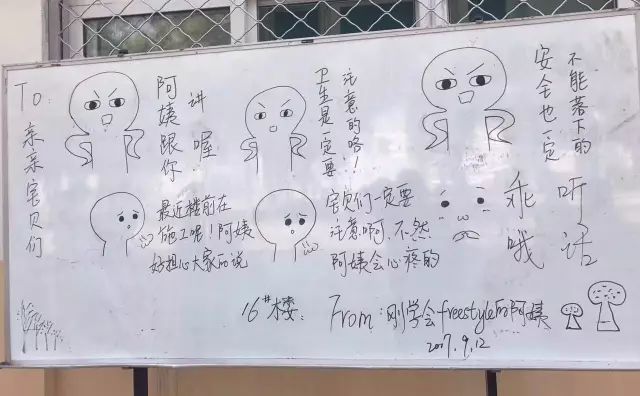 To:亲亲宝贝们
阿姨跟你
讲喔
卫生是一定要
注意的咯!
安全也一定
不能落下的
最近楼前在
施工呢!阿姨
好担心大家的说
宝贝们一定要
注意啊,不然,
阿姨会心疼的
乖哦
听话
16#楼: From:刚学会freestyle的阿姨
2017.9.12